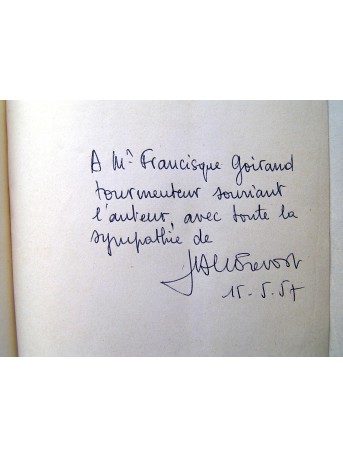 A Mr Francisque Goirand
tourmenteur souriant
l'auteur, avec toute la
sympathie de
15.5.57